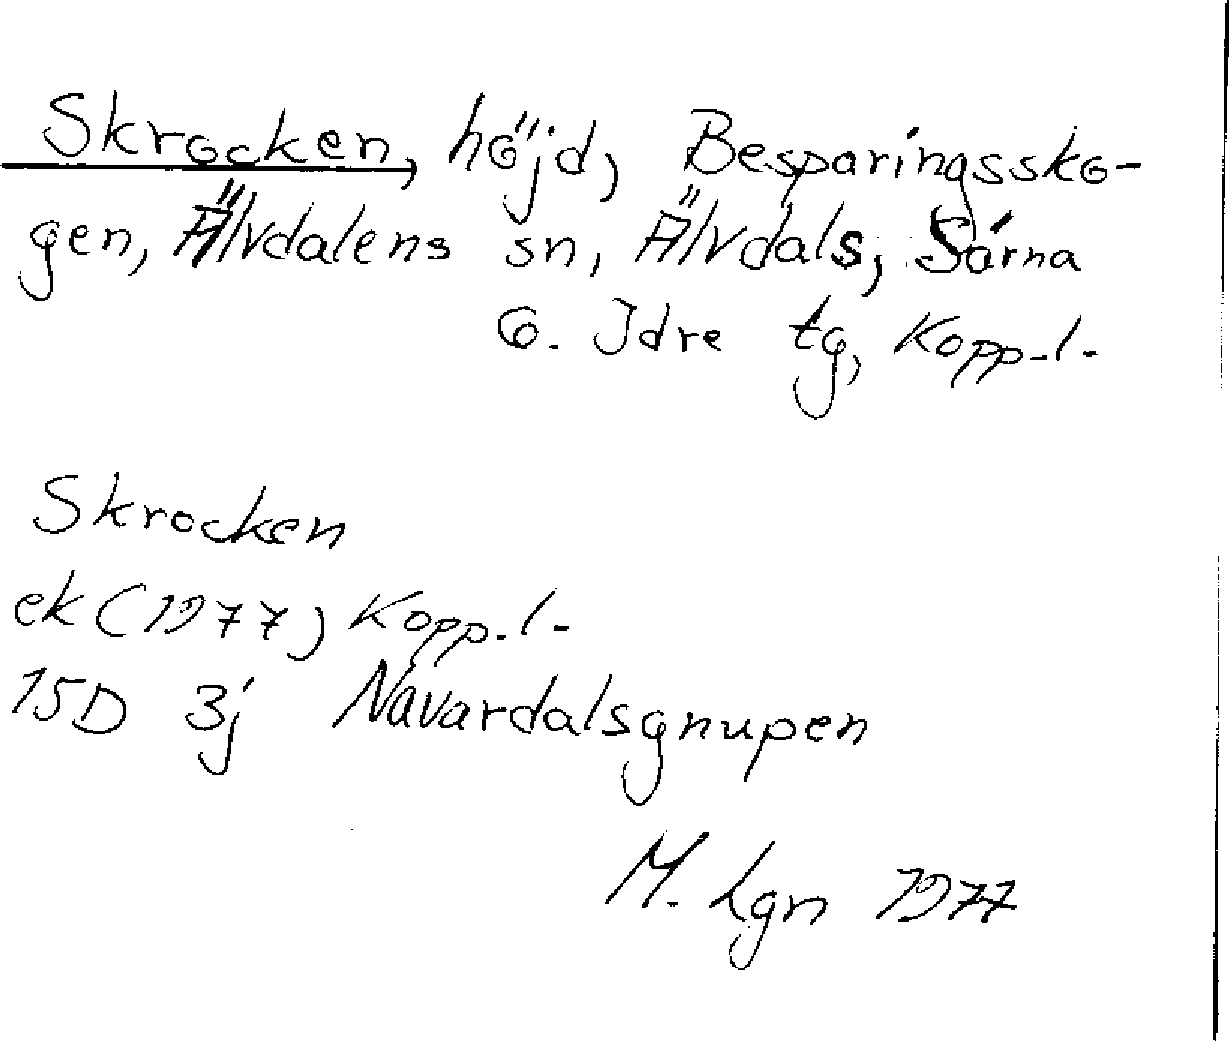 Skrocken, höjd, Besparingssko-
gen, Älvdalens sn, Älvdals, Särna
o. Idre tg, Kopp.l.
Skrocken
ek (1977) Kopp.l.
15D 3j Navardalsgnupen
M. Lgn 1977